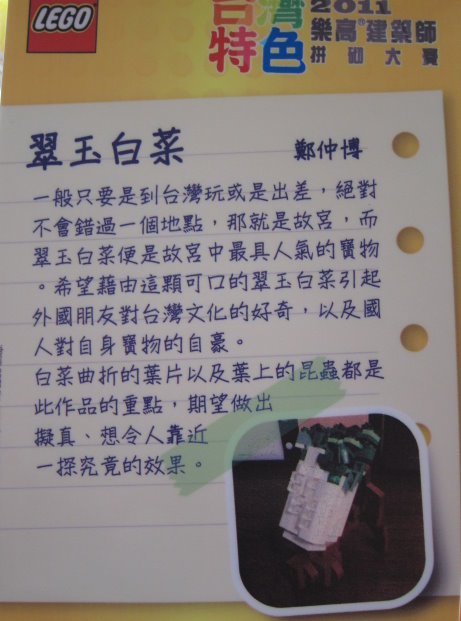 LEGO
台灣
特色
2011
樂高®建築師
拼砌大賽
翠玉白菜
鄭仲博
一般只要是到台灣玩或是出差，絕對
不會錯過一個地點，那就是故宮，而
翠玉白菜便是故宮中最具人氣的寶物
。希望藉由這顆可口的翠玉白菜引起
外國朋友對台灣文化的好奇，以及國
人對自身寶物的自豪。
白菜曲折的葉片以及葉上的昆蟲都是
此作品的重點，期望做出
擬真、想令人靠近
一探究竟的效果。